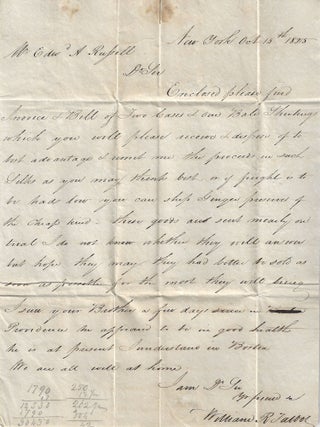 New York Oct 15th 1825
Mr Edwd A Russell
Dr Sir
Enclosed please find
Invoice & Bill of Two Cases & One Bale Sheetings
which you will please receive & dispose of to
best advantage & remit me the proceeds in such
as you may think best or if freight is to
be had low you can ship
the cheap kind. These goods are sent mearly on
trial I do not know whether they will answer
but hope they may they had better be sold as
soon as possible for the most they will bring
I saw your Brother a few days since in
Providence he appeared to be in good health
he is at present I understand in Boston
We are all well at home
I am Dr Sir
yr friend &
William R Talbot
1790
1790
30430